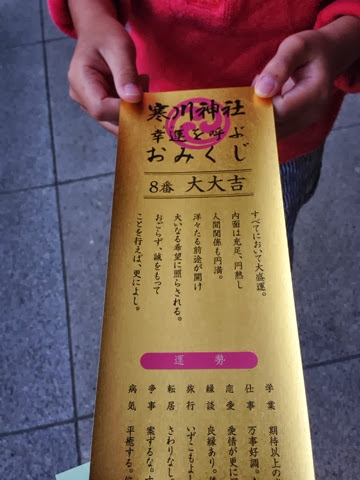 寒川神社
幸運を呼ぶ
おみくじ
8番 大大吉
すべてにおいて大盛運。
内面は充足、円熟し
人間関係も円満。
洋々たる前途が開け
大いなる希望に照らされる。
おごらず、誠をもって
ことを行えば、更によし。
運勢
学業 期待以上の
仕事 万事好調。
恋愛 愛情が更に
縁談 良縁あり。
旅行 いずこもよし
転居 さわりなし。
争事 案ずるな。
病気 平癒する。